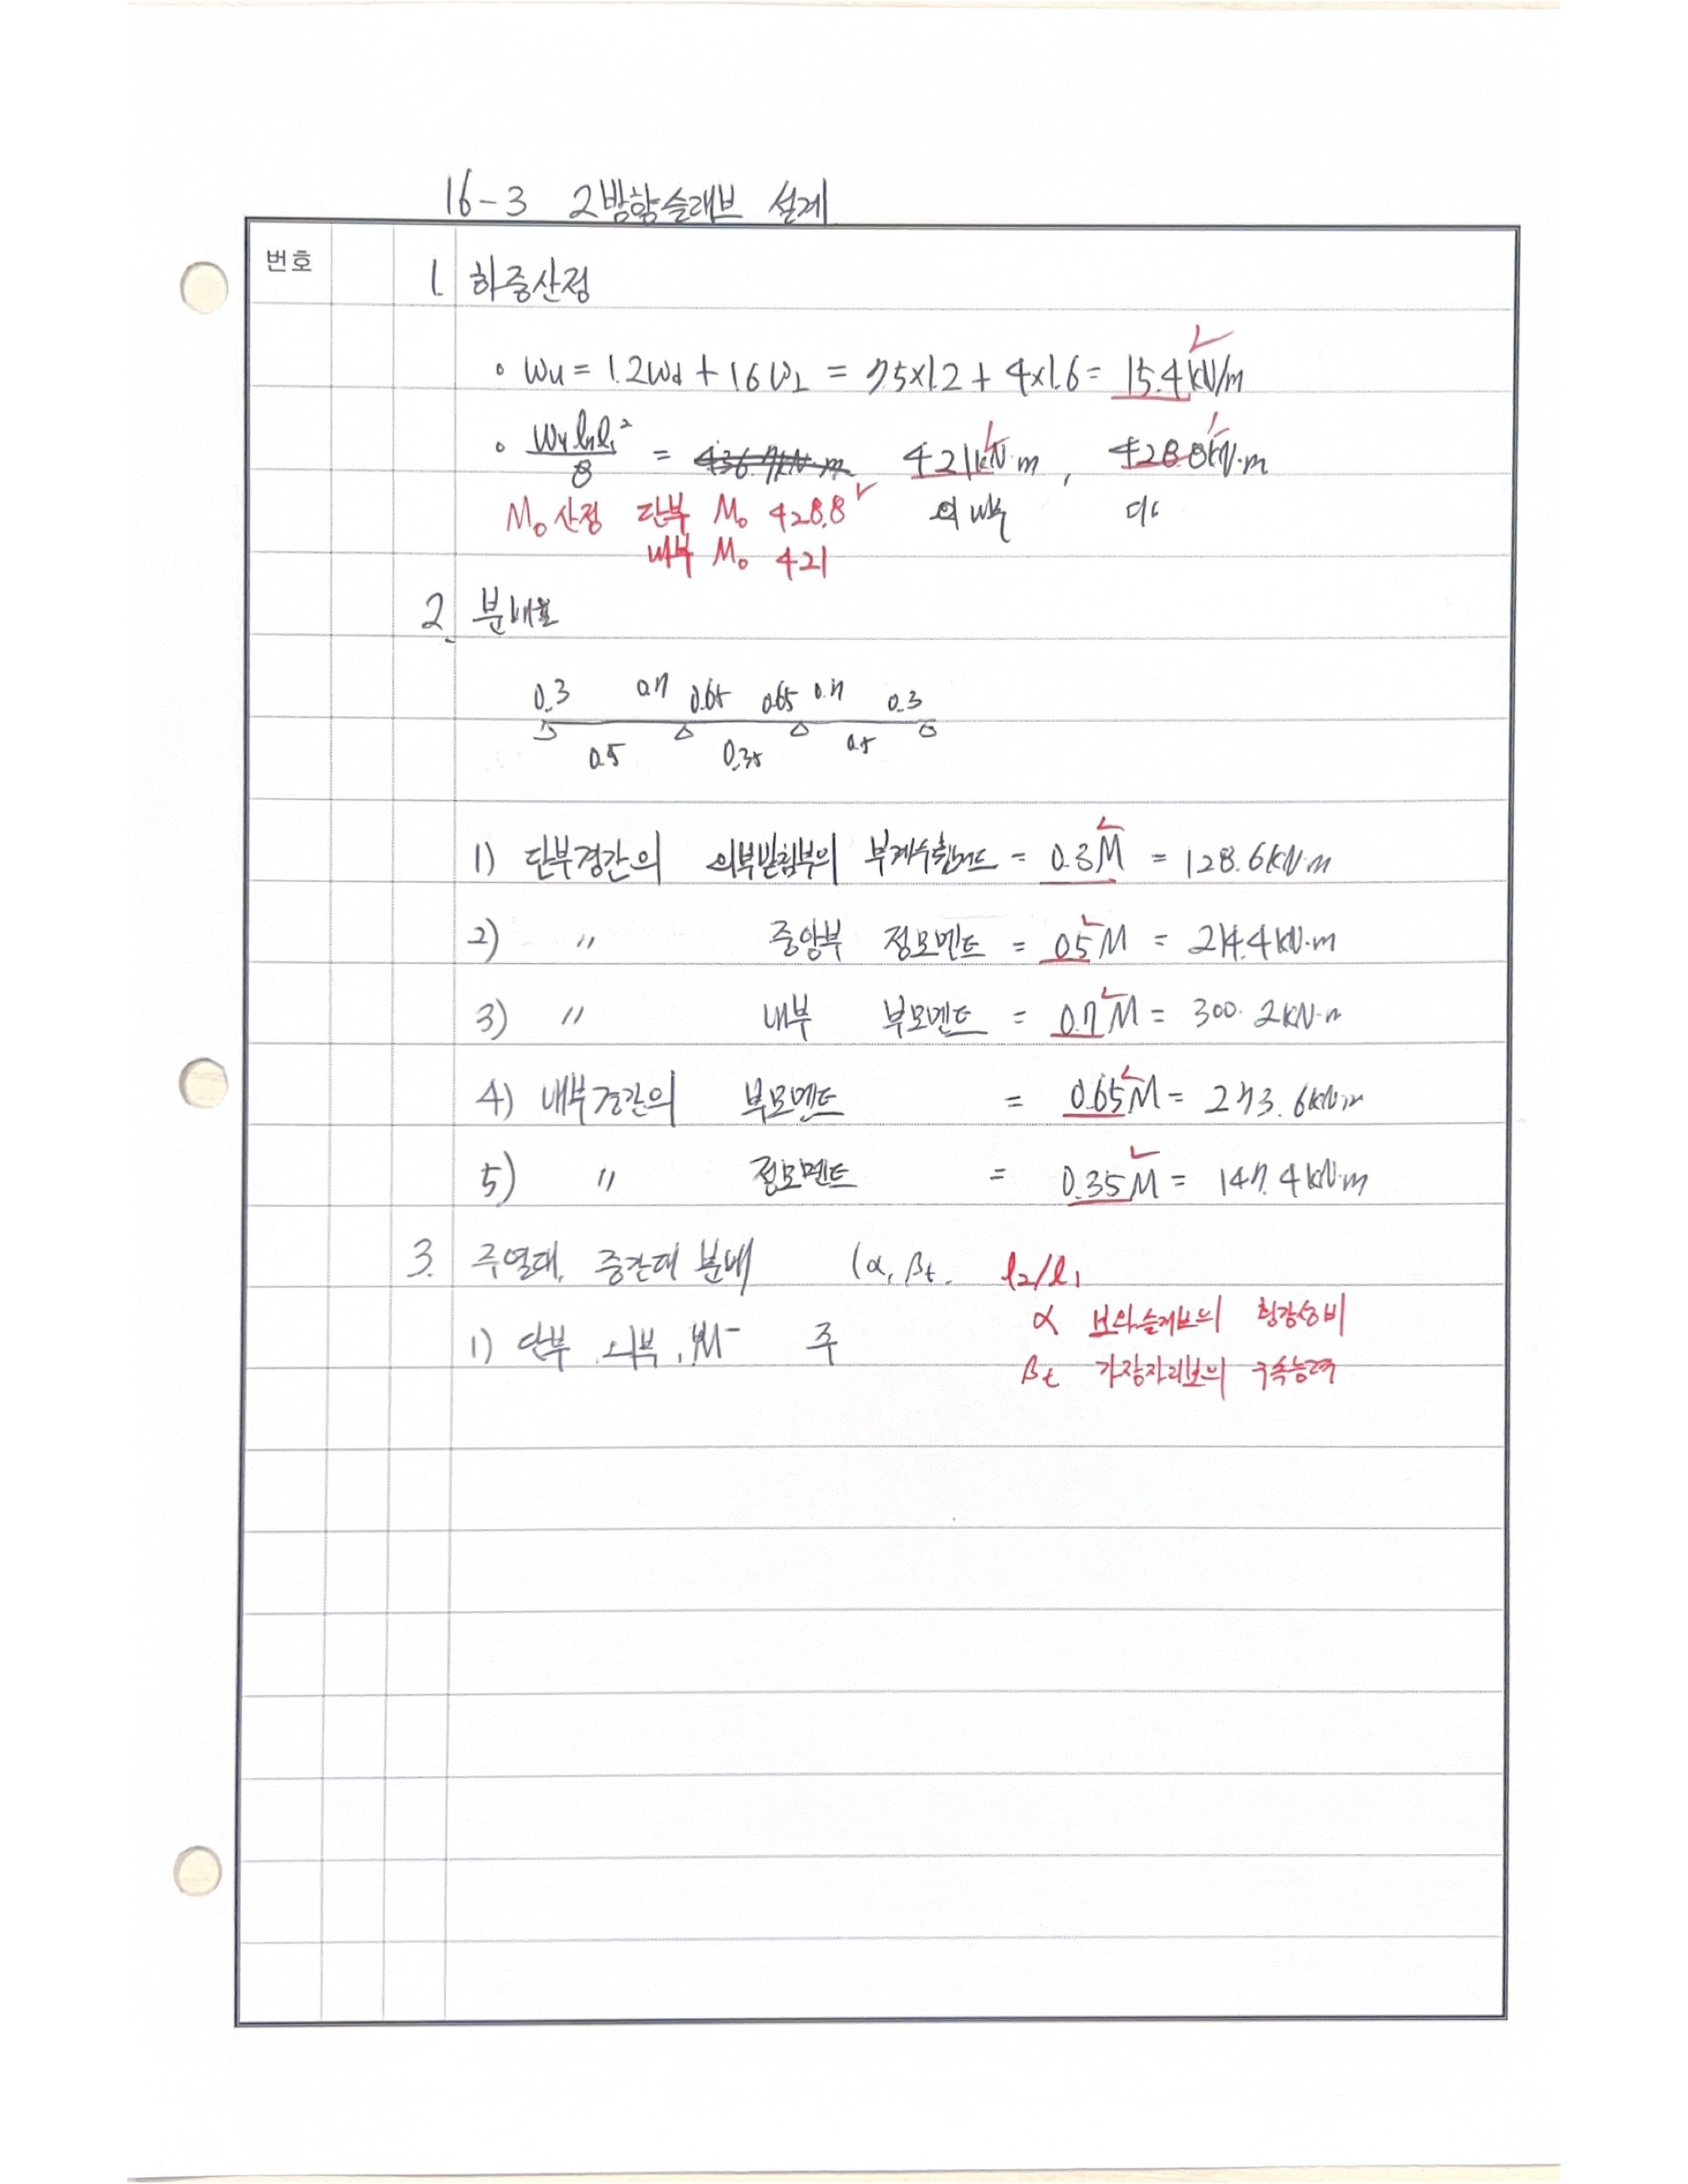 16-3 2방향슬래브 설계
번호
1. 하중산정
∘ Wu = 1.2Wd + 1.6WL = 7.5×1.2 + 4×1.6 = 15.4kN/m
∘ Wu l₂ln²/8 = 421kN·m , 428.8kN·m
M₀ 산정 단부 M₀ 428.8 외내부
내부 M₀ 421
2. 분배율
0.3 0.7 0.65 0.65 0.7 0.3
0.5 0.35 0.5
1) 단부경간의 외부받침부의 부계수휨모멘트 = 0.3M = 128.6kN·m
2) 〃 중앙부 정모멘트 = 0.5M = 214.4kN·m
3) 〃 내부 부모멘트 = 0.7M = 300.2kN·m
4) 내부경간의 부모멘트 = 0.65M = 273.6kN·m
5) 〃 정모멘트 = 0.35M = 147.4kN·m
3. 주열대, 중간대 분배 (α, βt. l₂/l₁
α 보와 슬래브의 휨강성비
1) 단부, 외부, M⁻ 주
βt 가장자리보의 구속능력